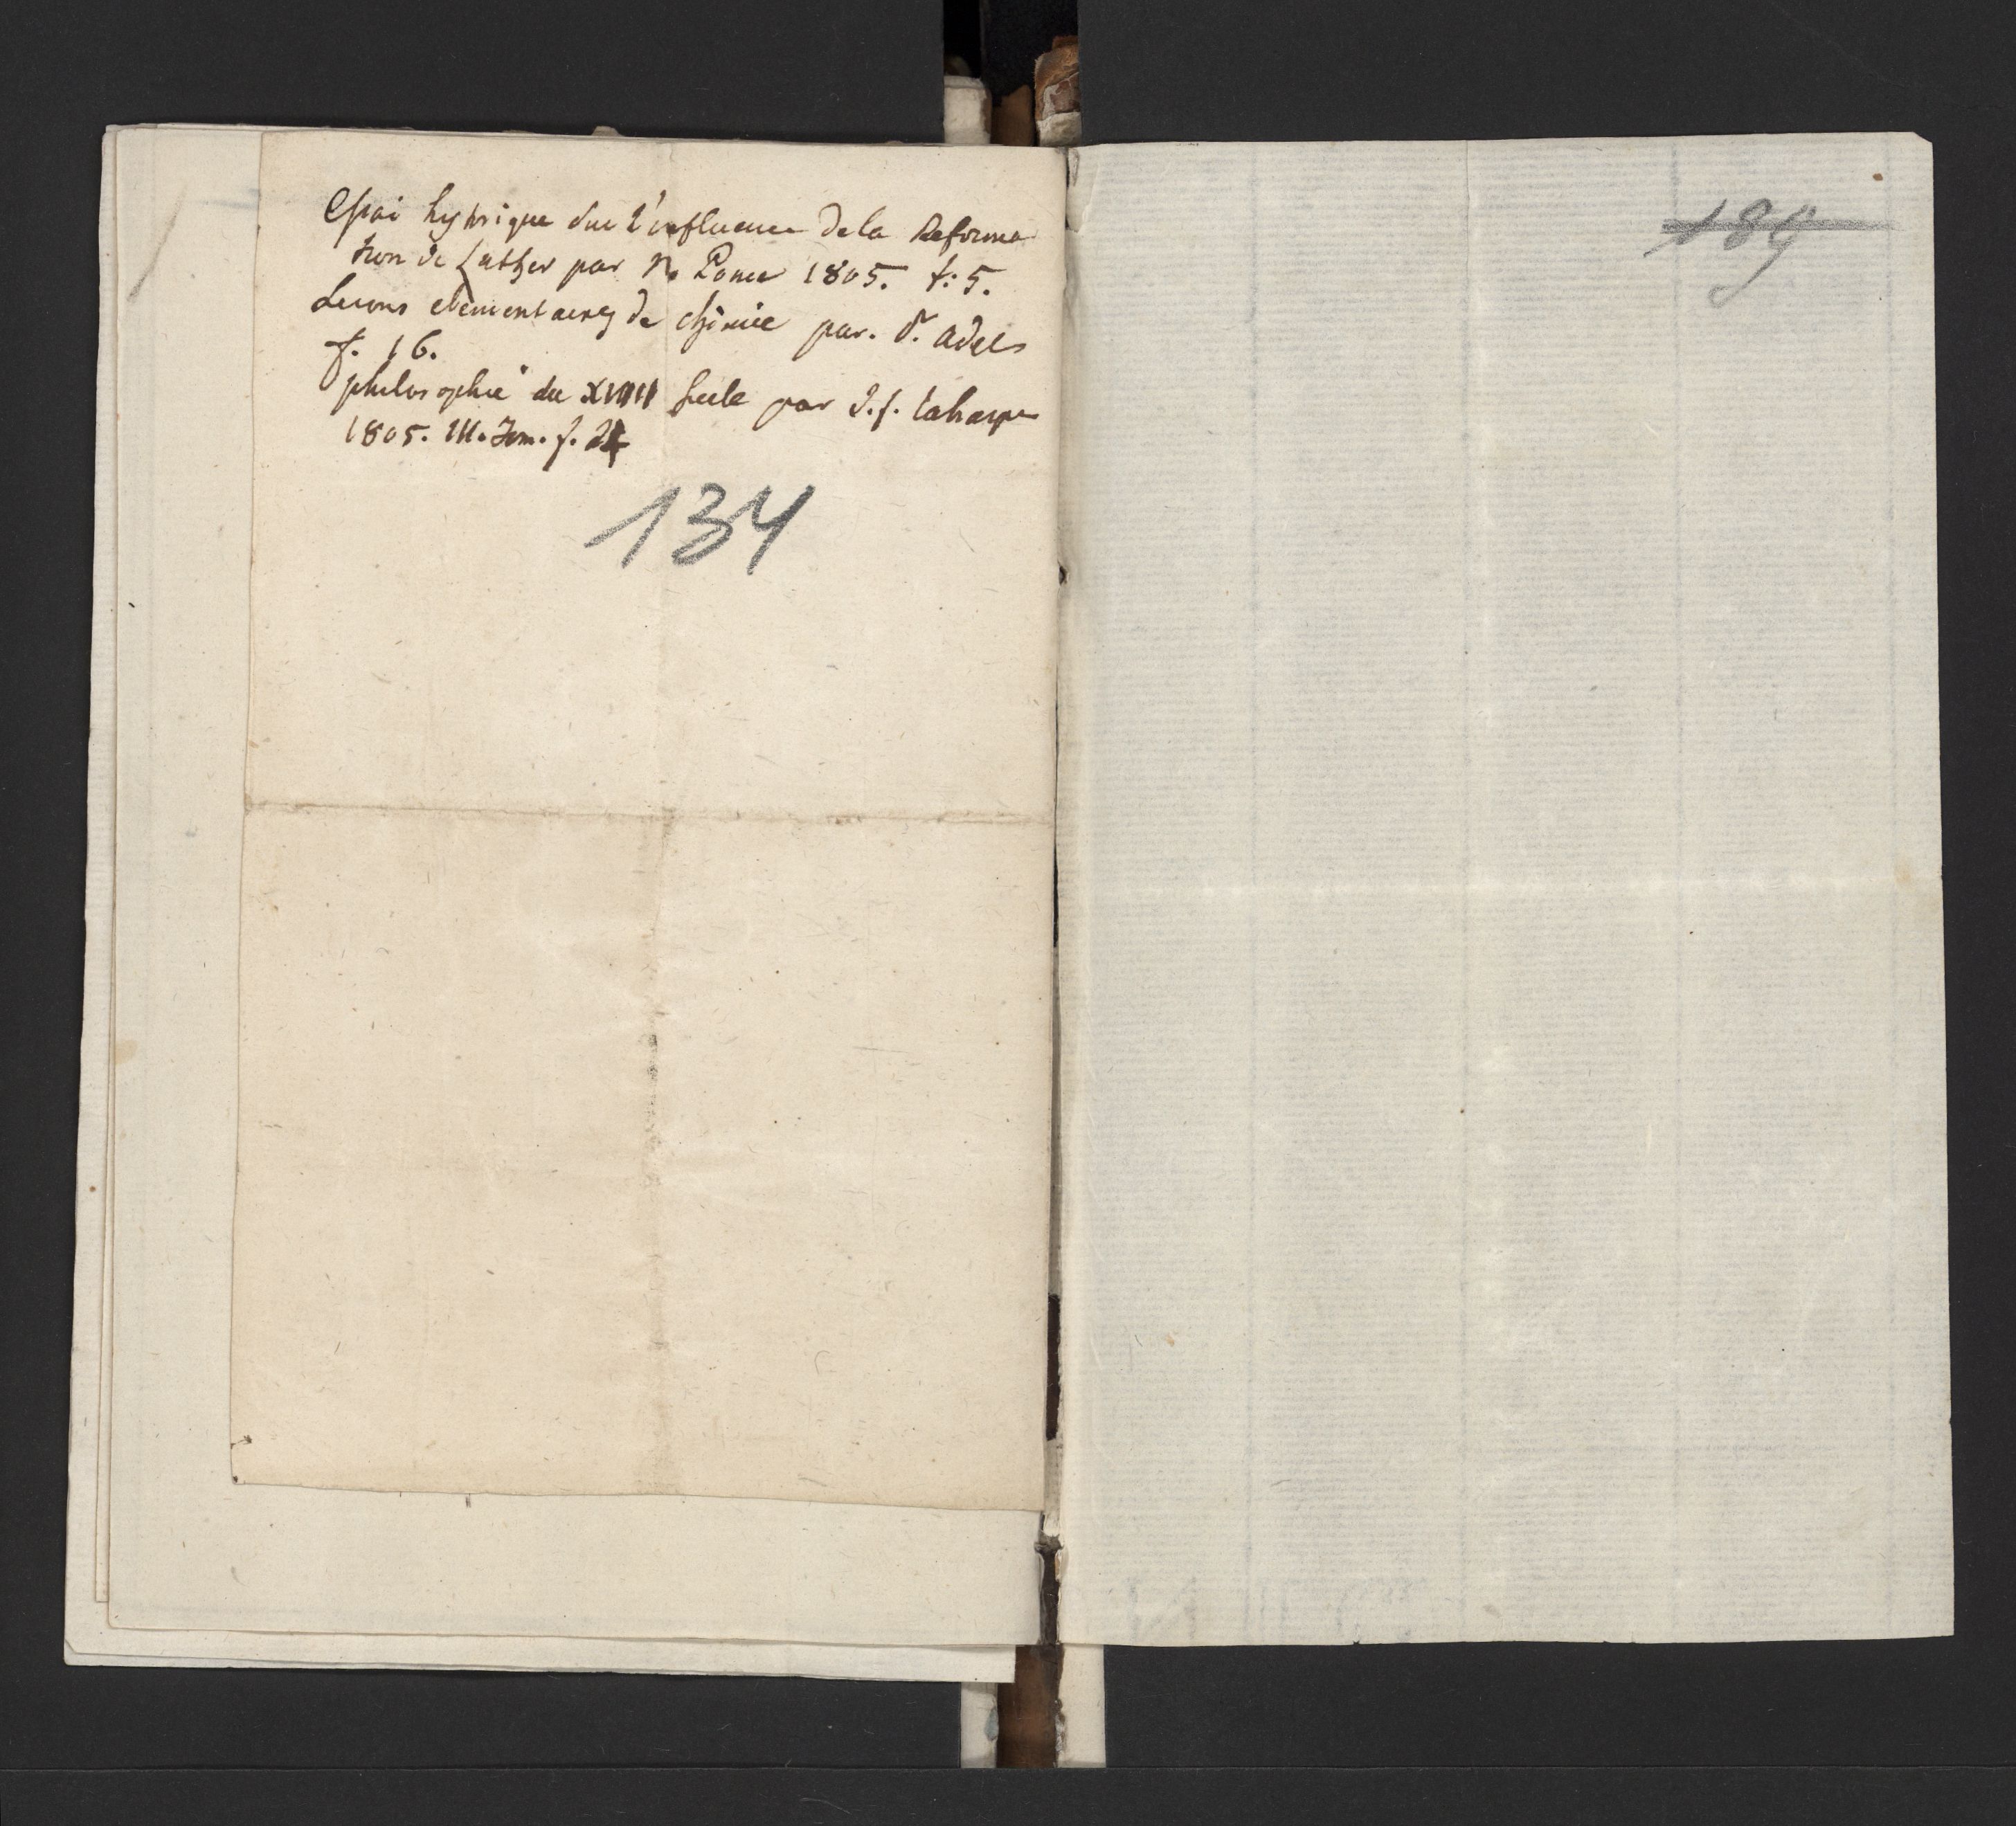 Essai hystorique sur l'influence de la Reforma
tion de Luther par N. Ponce 1805. f: 5.
Lecons elementaires de chimie par. P. adet
f. 16.
philosophie du XVIIII siecle par J. f. laharpe
1805. III. Tom. f. 24
134
189